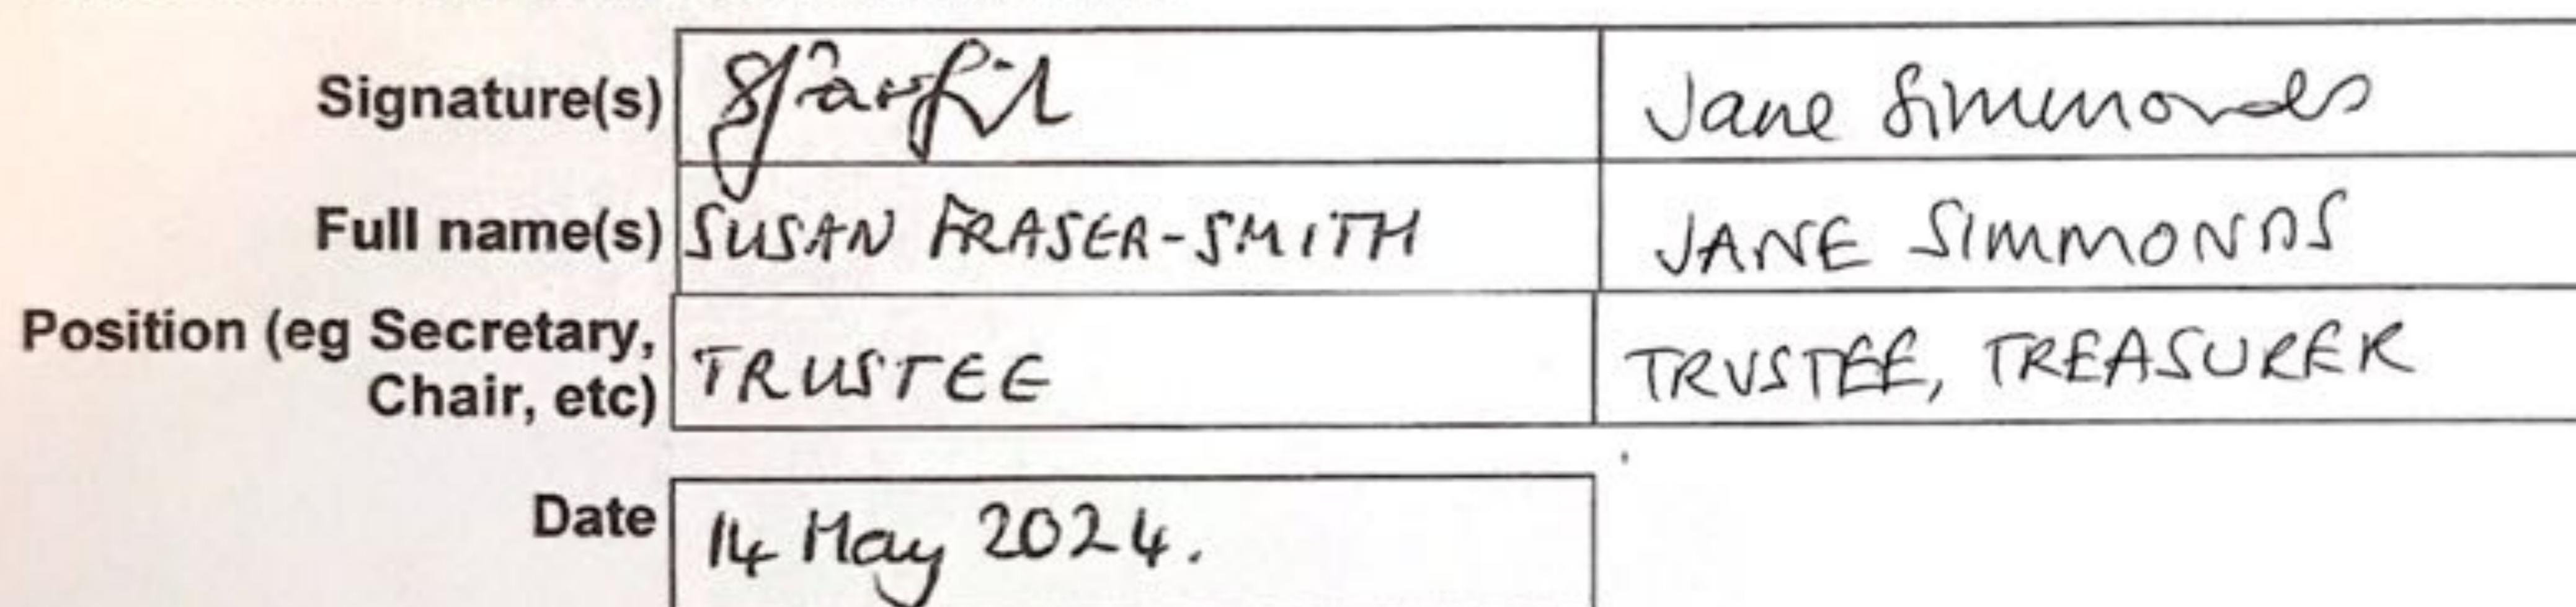 Signature(s) Jane Simmonds
Full name(s) SUSAN FRASER-SMITH JANE SIMMONDS
Position (eg Secretary,
Chair, etc) TRUSTEE TRUSTEE, TREASURER
Date 14 May 2024.